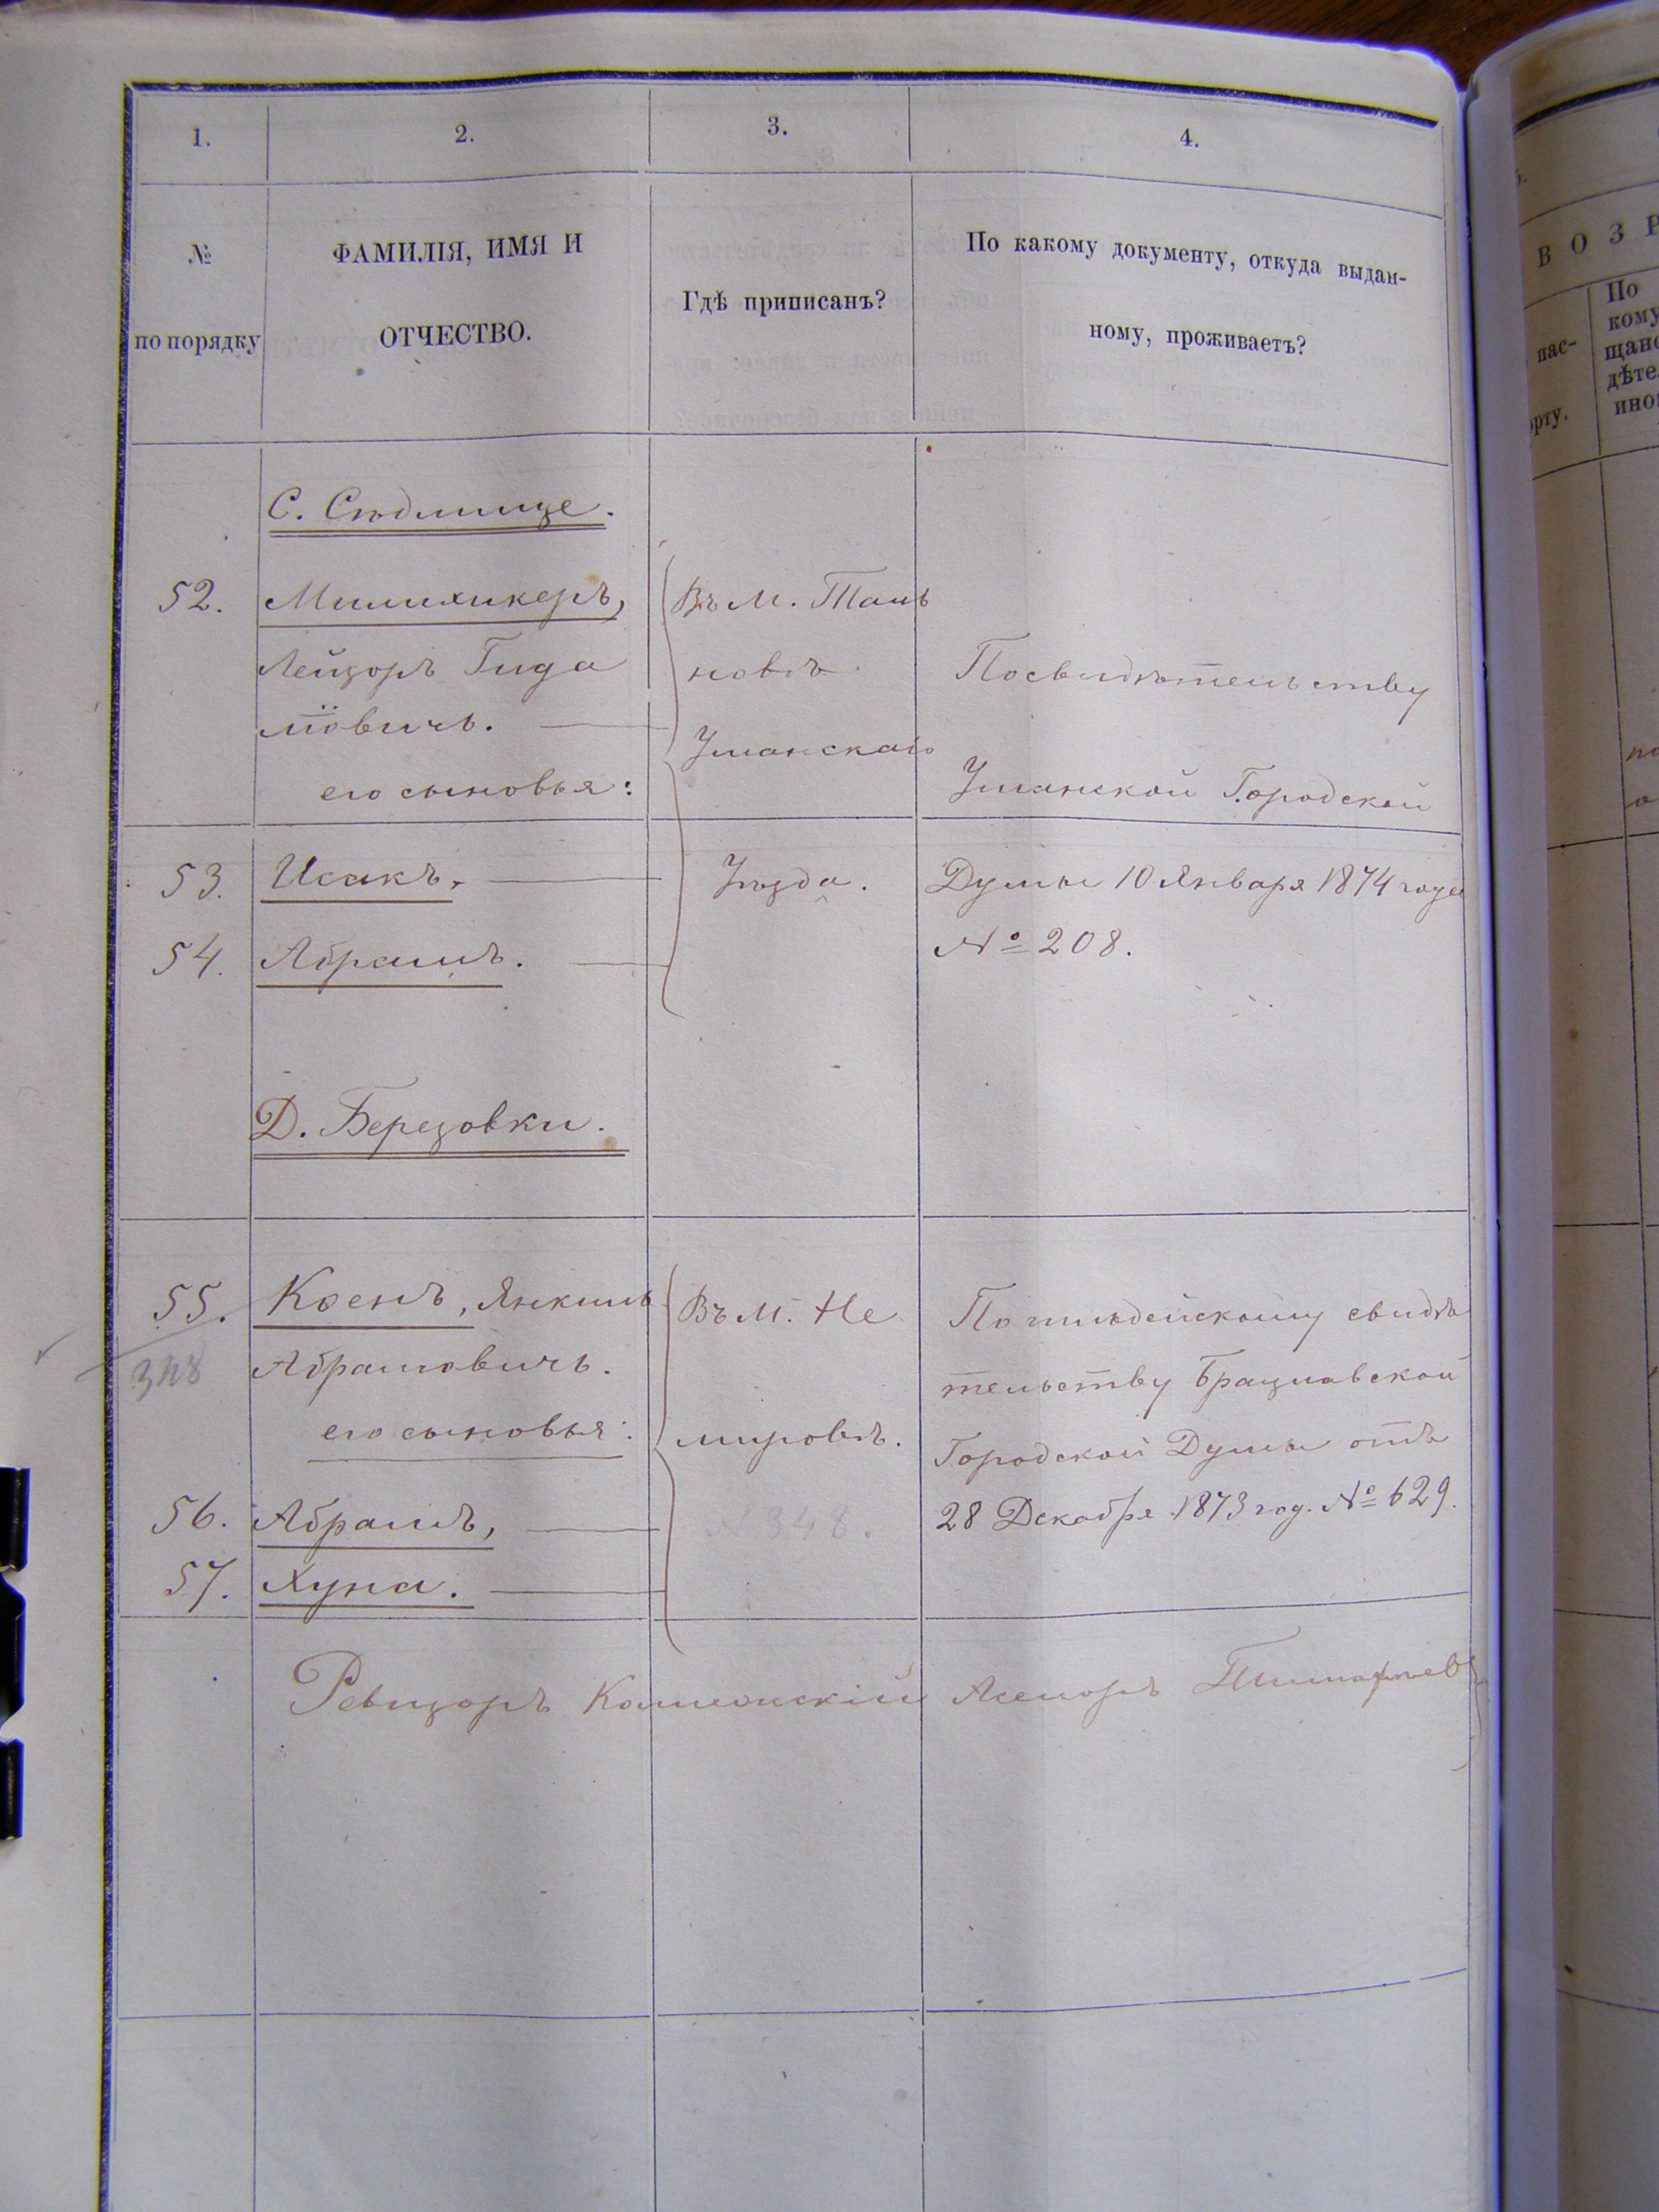 1.
2.
3.
4.
№
по порядку
ФАМИЛІЯ, ИМЯ И
ОТЧЕСТВО.
Гдѣ приписанъ?
По какому документу, откуда выдан-
ному, проживаетъ?
С. Сѣдлище.
52.
Милихикеръ,
Лейзоръ Гида
лїовичъ.
его сыновья:
Въ м. Таль
новѣ
Уманскаго
Уѣзда.
По свидѣтельству
Уманской Городской
Думы 10 Января 1874 года
№ 208.
53.
Исакъ,
54.
Абрамъ.
Д. Березовки.
55.
348
Коенъ, Янкель
Абрамовичъ.
его сыновья:
Въ м. Не
мировѣ.
348.
свидѣ
тельству Брацлавской
Городской Думы отъ
28 Декабря 1873 год. № 629.
56.
Абрамъ,
57.
Хуна.
Ревизоръ
ВОЗР
пас-
орту.
По
кому
щано
дѣте
ино